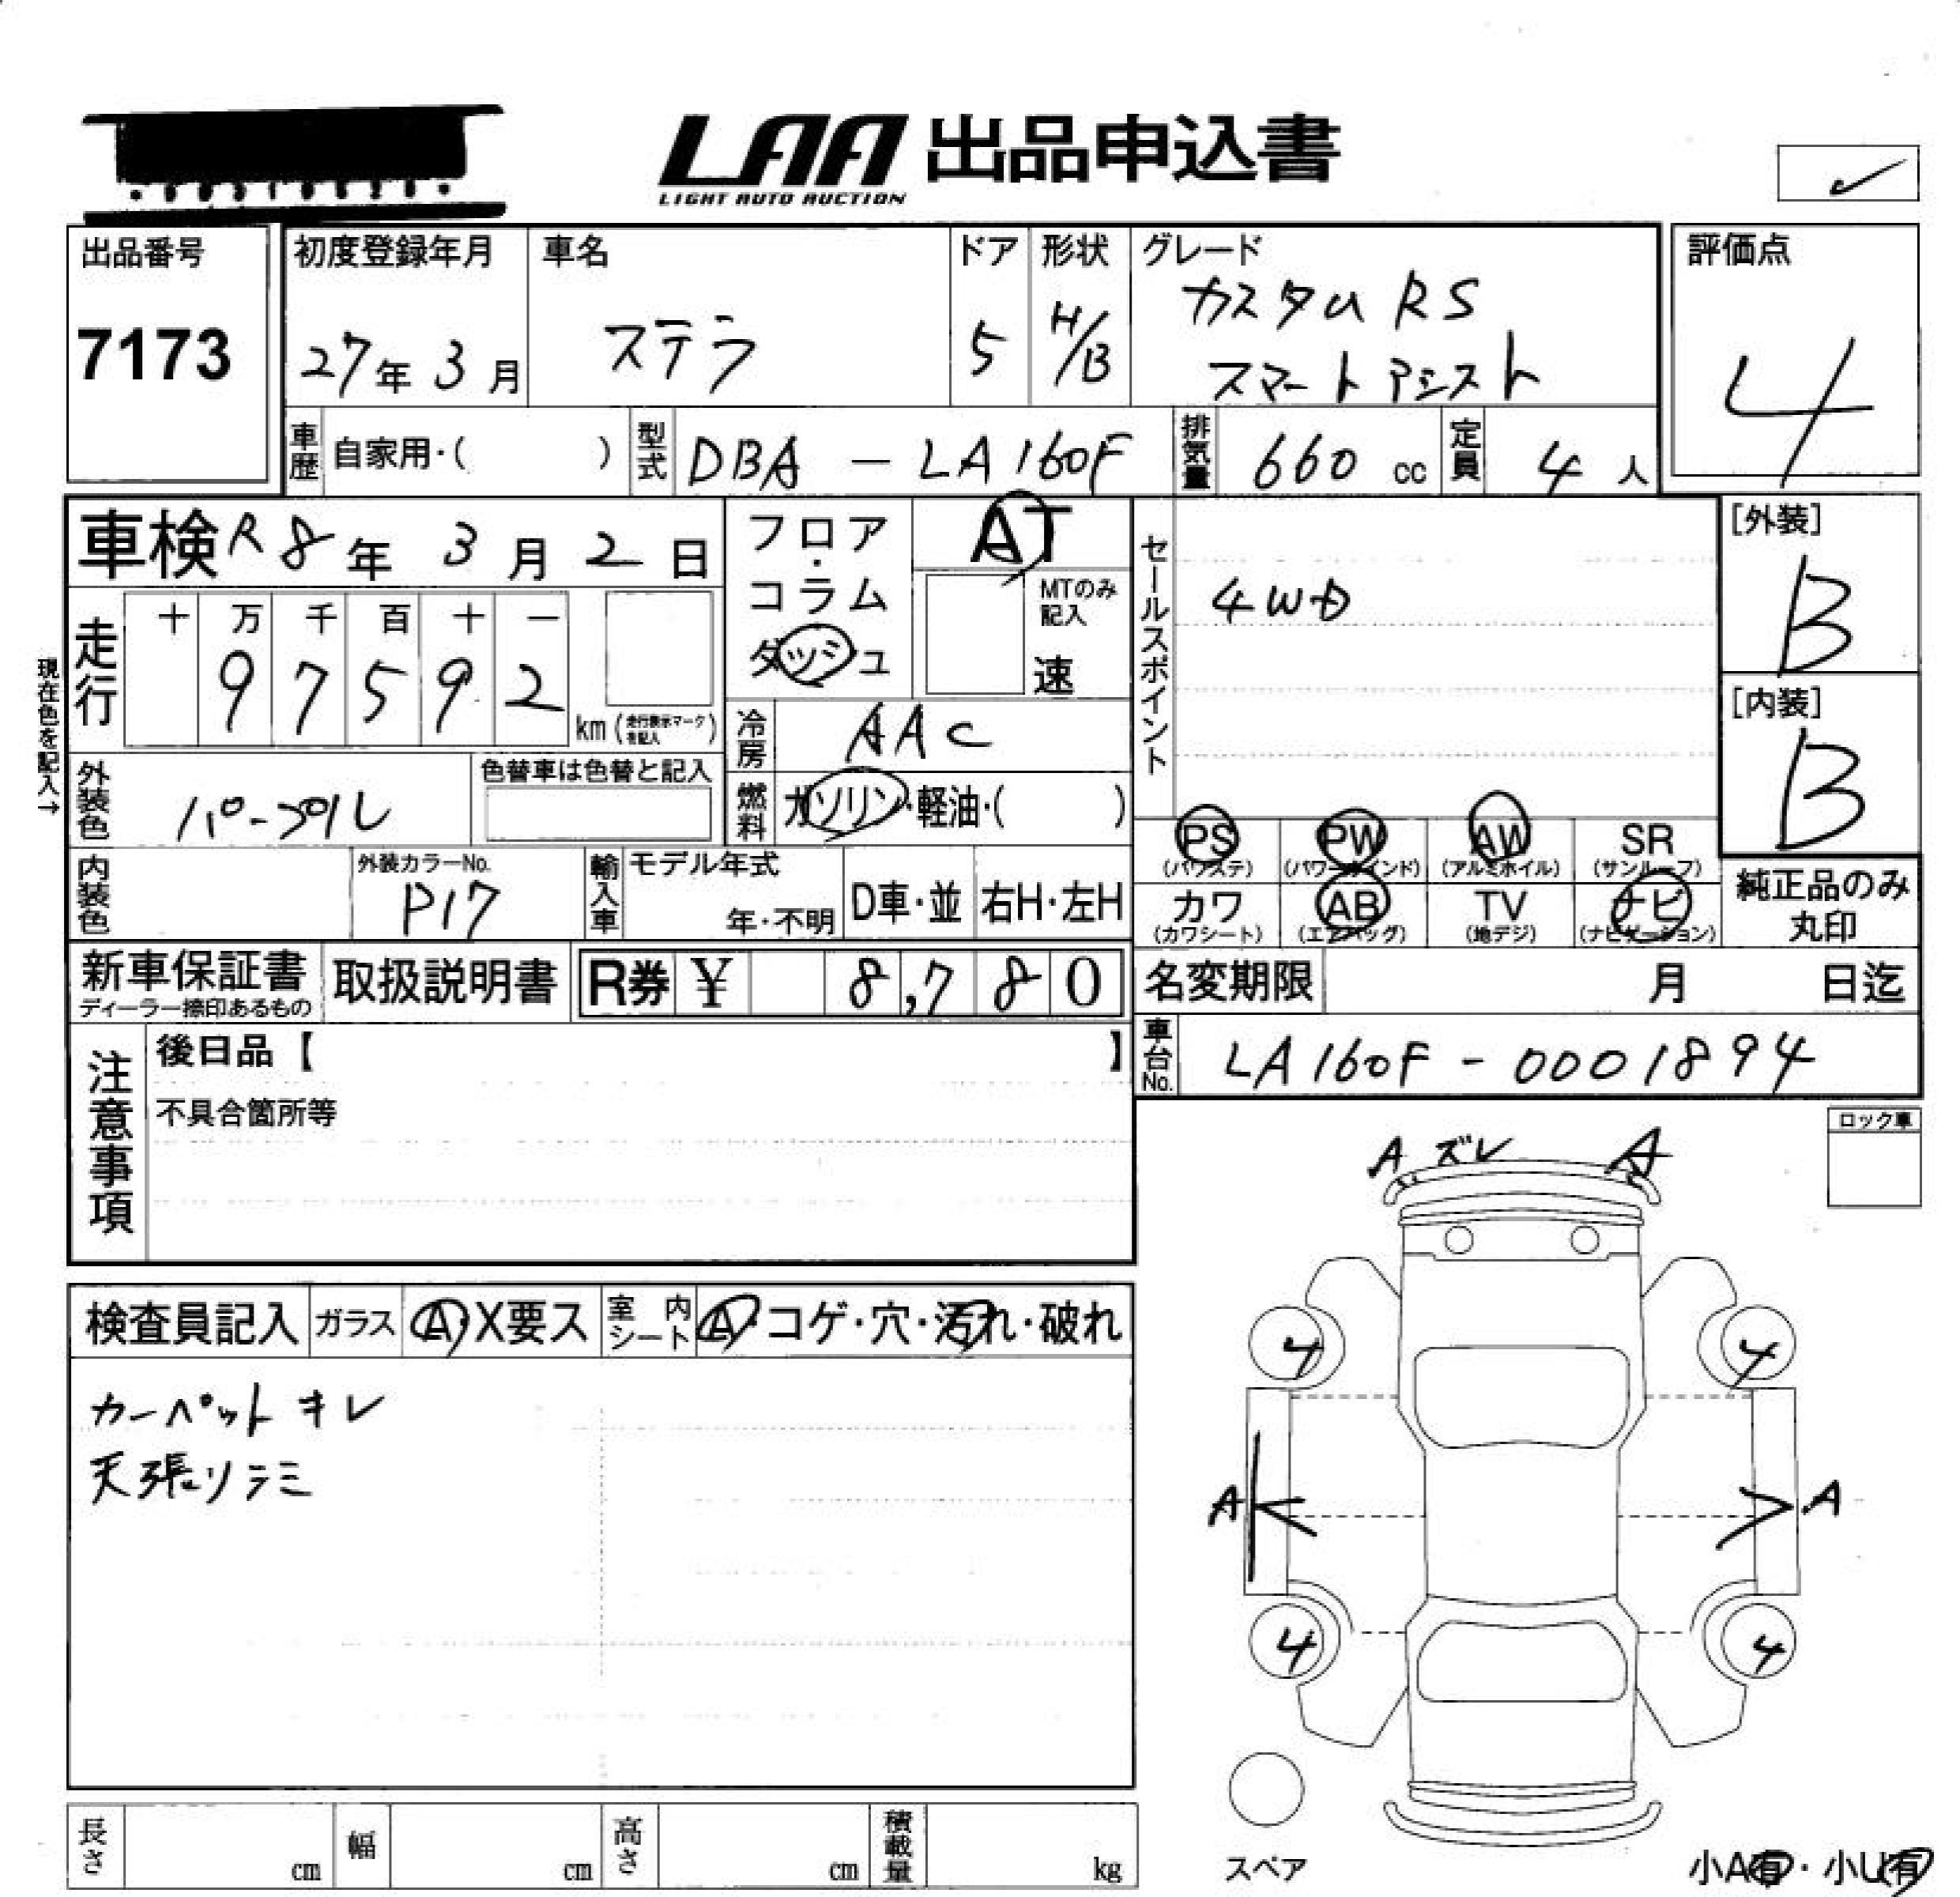 LAA 出品申込書
LIGHT AUTO AUCTION
出品番号
7173
初度登録年月
27年 3月
車名
ステラ
ドア
5
形状
H/B
グレード
カスタム RS
スマートアシスト
評価点
4
車歴 自家用・( )
型式 DBA - LA160F
排気量 660 cc
定員 4人
車検 R8年 3月 2日
フロア・コラム
ダッシュ
AT
MTのみ記入
速
セールスポイント
4WD
[外装]
B
[内装]
B
現在色を記入→
走行
十 万 千 百 十 一
9 7 5 9 2
km (走行表示マークを記入)
冷房 AAC
外装色 パープル
色替車は色替と記入
燃料 ガソリン・軽油・( )
PS (パワステ)
PW (パワーウインド)
AW (アルミホイル)
SR (サンルーフ)
カワ (カワシート)
AB (エアバッグ)
TV (地デジ)
ナビ (ナビゲーション)
純正品のみ
丸印
内装色
外装カラーNo.
P17
輸入車
モデル年式
年・不明
D車・並
右H・左H
新車保証書
ディーラー捺印あるもの
取扱説明書
R券 ¥ 8,780
名変期限 月 日迄
車台No. LA160F - 0001894
注意事項
後日品【 】
不具合箇所等
ロック車
A ズレ A
検査員記入
ガラス A・X要ス
室内シート A・コゲ・穴・汚れ・破れ
カーペット キレ
天張リシミ
4 4
A A
4 4
スペア
小A有・小U有
長さ cm
幅 cm
高さ cm
積載量 kg